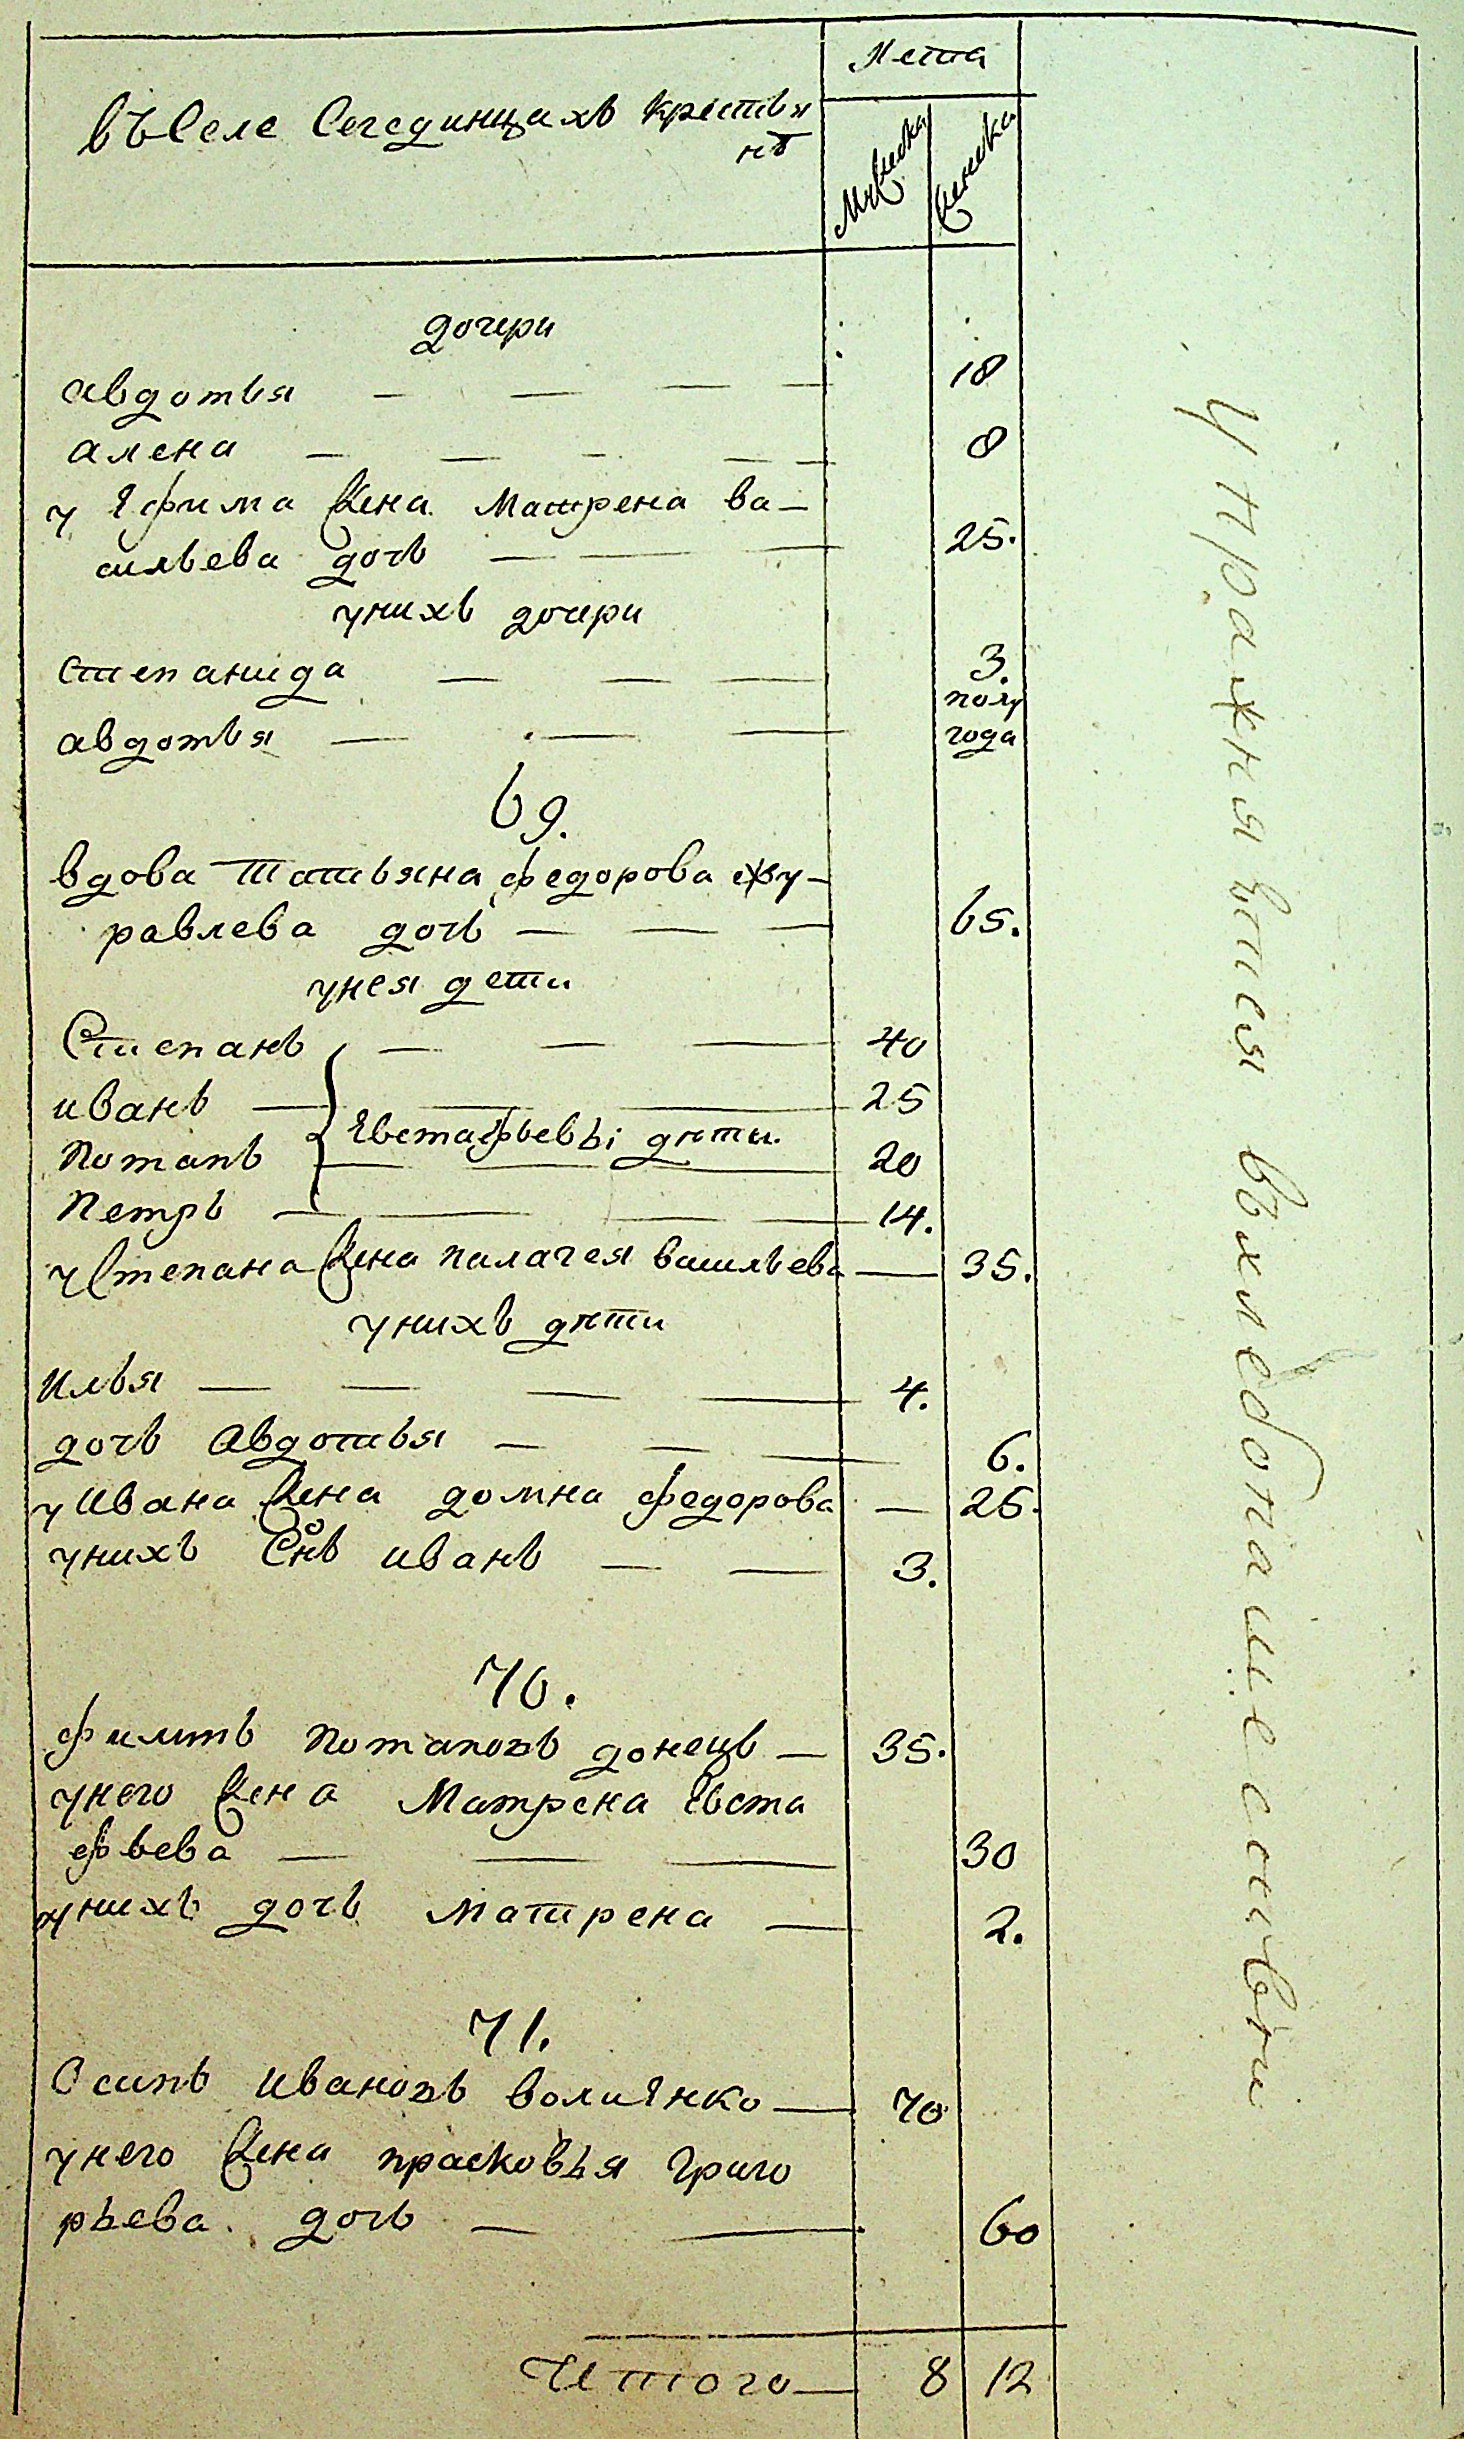 Лета
въ Селе Сегединцахъ крестья
нъ
Мужеска
Женска
дочери
авдотья 18
алена 8
у Ефима жена Матрена ва-
сильева дочь 25.
унихъ дочери
Степанида 3.
авдотья полу года
69.
вдова Татьяна федорова жу-
равлева дочь 65.
унея дети
Степанъ 40
иванъ 25
Евстафьевы дѣти.
Потапъ 20
Петръ 14.
у Степана жена палагея васильева 35.
унихъ дѣти
Илья 4.
дочь Авдотья 6.
у Ивана жена домна федорова 25.
унихъ Снъ иванъ 3.
70.
филипъ Потаповъ донецъ 35.
унего жена Матрена Евста
фьева 30
унихъ дочь Матрена 2.
71.
Осипъ Ивановъ 70
унего жена прасковья Григо
рьева дочь 60
Итого 8 12
упражнявтся въхлебопашесствѣ